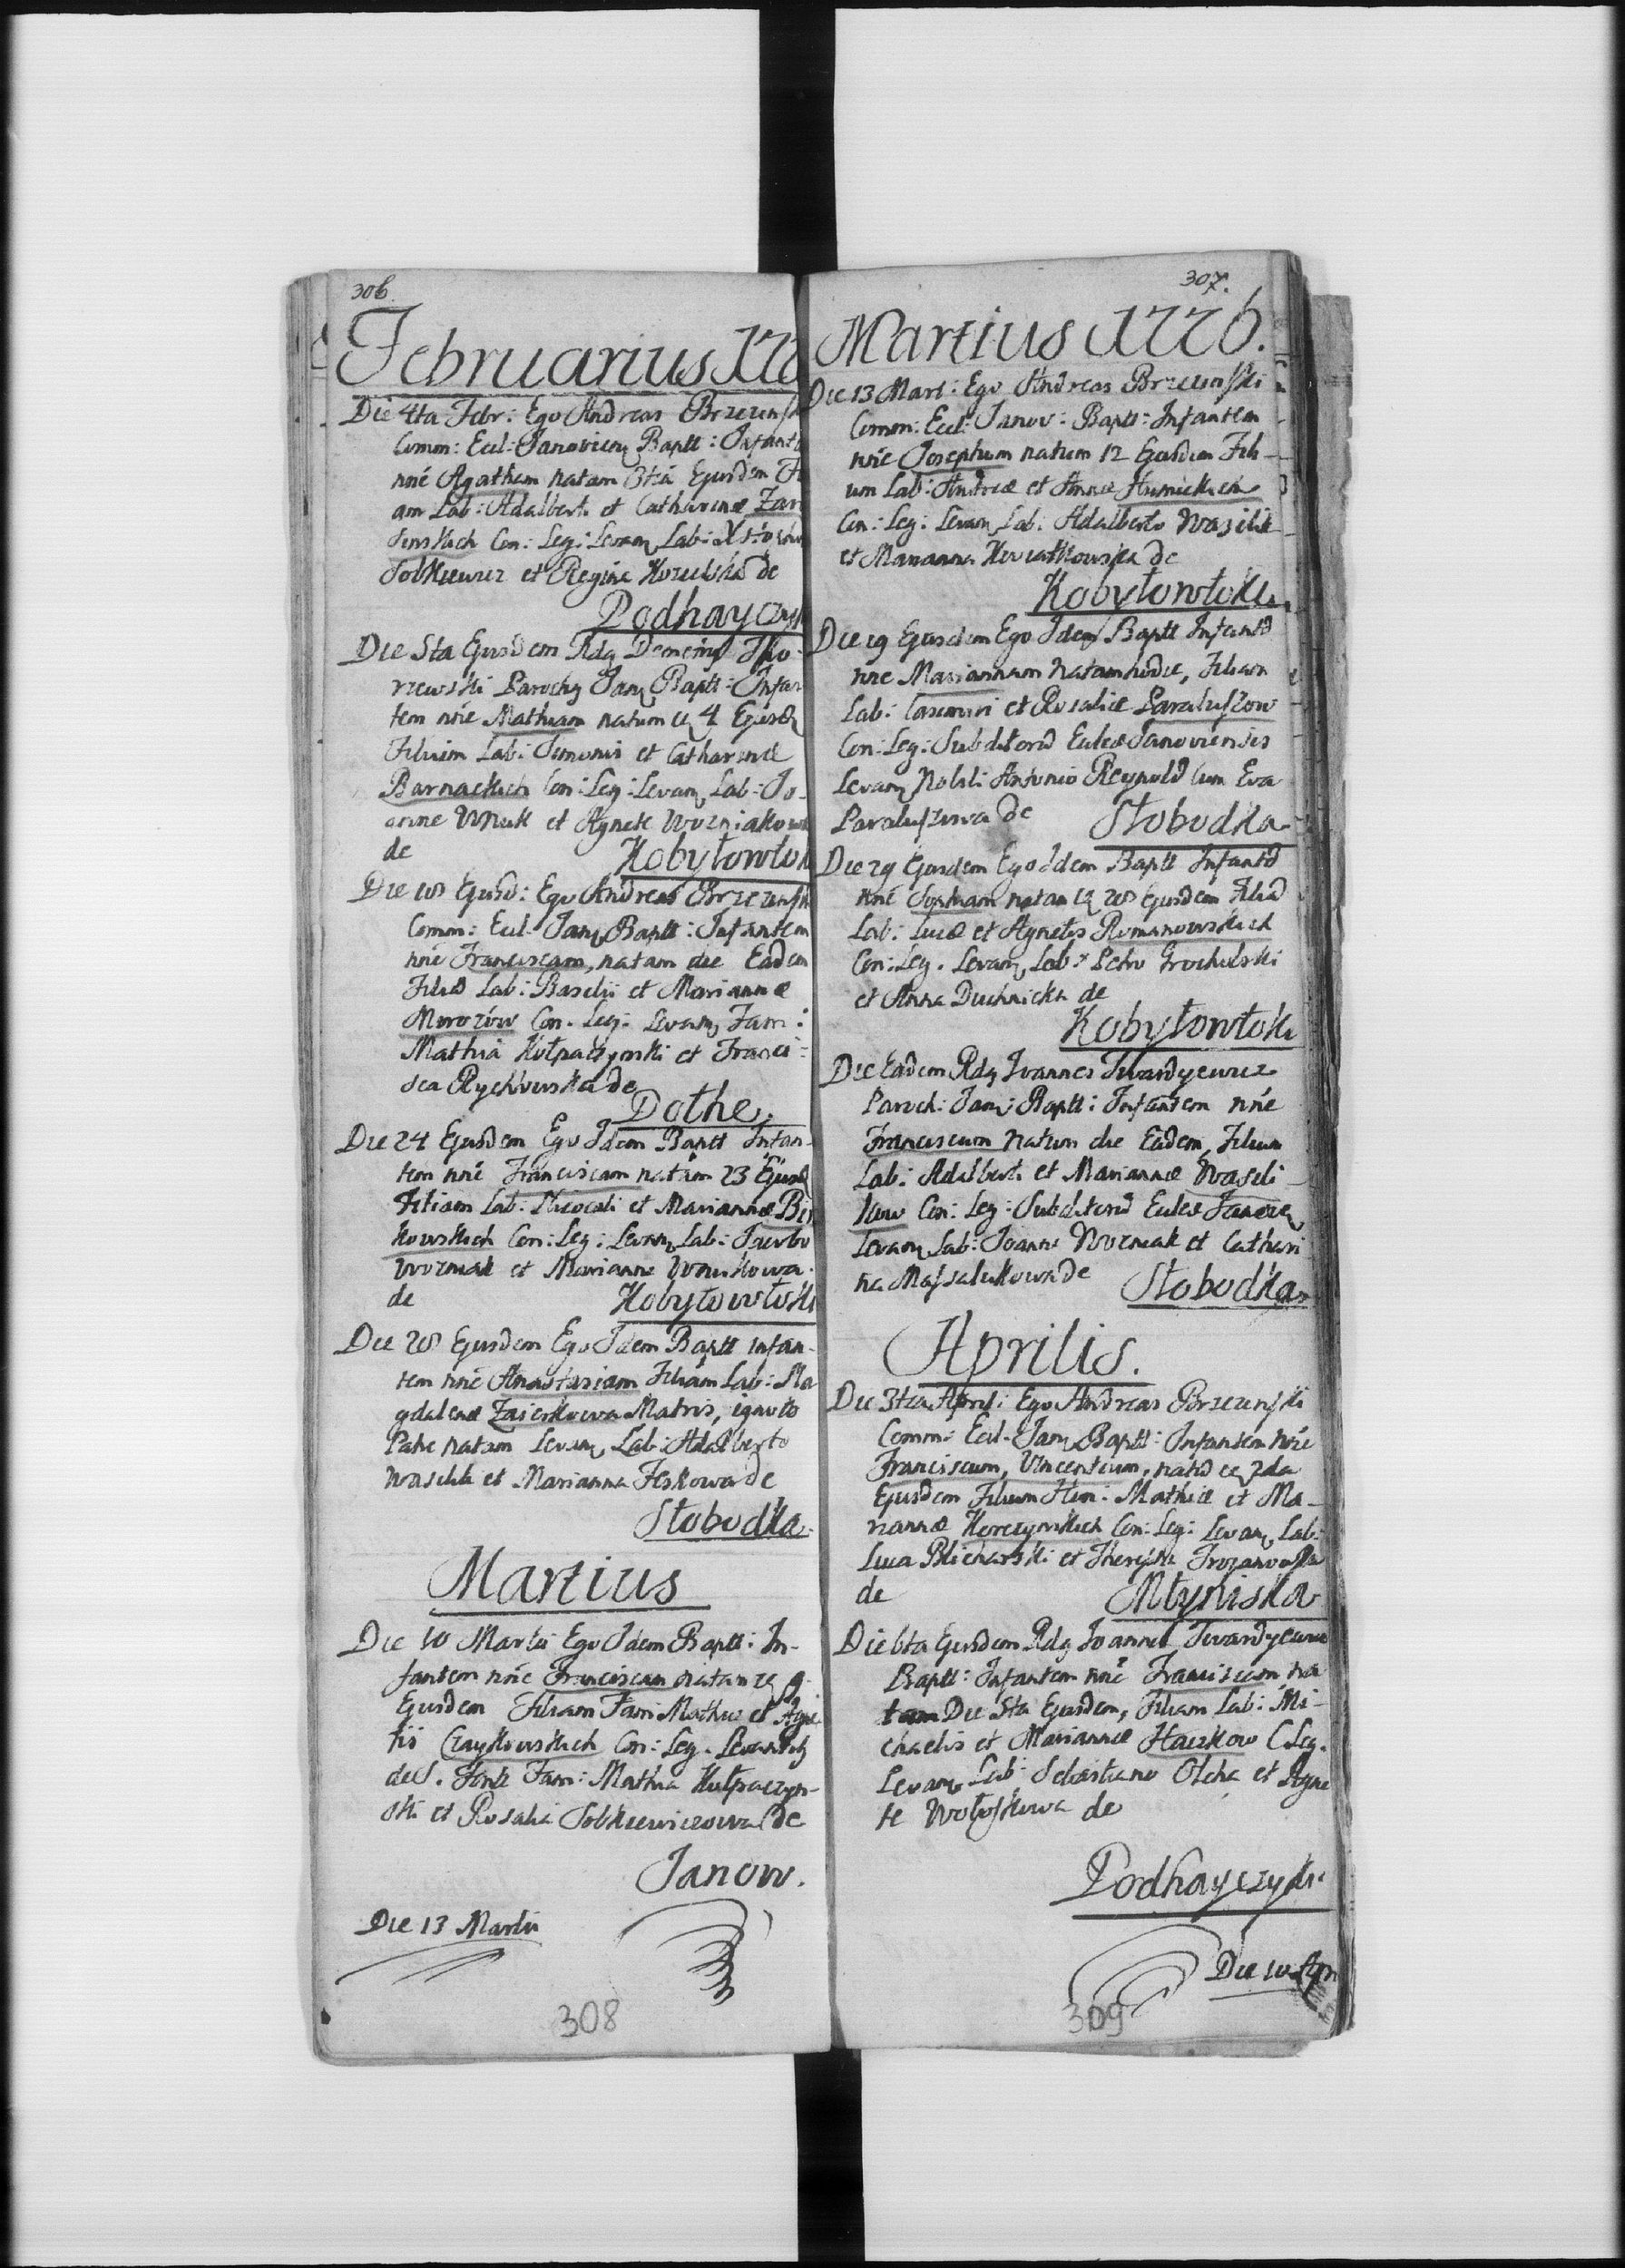 306.
Februarius 177
Die 4ta Febr: Ego Andreas Brzezinsk
Comm: Eccl: Janovien Baptt: Infant
nne Agatham natam 3tia Ejusdem Fi
am Lab: Adalberti et Catharinae Zar
Con: Leg: Levan Lab:
Sobkiewicz et Regina de
Podhayczyk
Die 5ta Ejusdem Rdq
Parochq Janq Baptt: Infan
tem nne Mathiam natum 4 Ejusd
Filium Lab: Simonis et Catharinae
Barnackich Con: Leg: Levanq Lab: Jo-
anne Wnuk et Agnete Wozniakowa
de Kobyłowłok
Die 18 Ejusd: Ego Andreas Brzezinsk
Comm: Eccl: Janq Baptt: Infantem
nne Franciscam, natam die Eadem
Filiã Lab: Basilii et Mariannae
Morozow Con: Leg: Levanq Fam:
Mathia Kułpaczynski et Franci-
sca Rychłowska de
Dołhe.
Die 24 Ejusdem Ego Idem Baptt Infan-
tem nne Franciscam natam 23 Ejusd
Filiam Lab: Nicolai et Mariannae Bi
kowskich Con: Leg: Levanq Lab: Jacobo
Wozniak et Marianna Wnukowa
de Kobyłowłoki
Die 28 Ejusdem Ego Idem Baptt infan-
tem nne Anastasiam Filiam Lab: Ma
gdalenae Matris, ignoto
Patre natam Levanq Lab: Adalberto
Wasilik et Marianna Feskowa de
Słobodka
Martius
Die 10 Martii Ego Idem Baptt: In-
fantem nne Franciscam natam 9
Ejusdem Filiam Fam Mathiae et Agne
tis Czaykowskich Con: Leg. Levantib
de S. Fonte Fam: Mathia Kułpaczyn-
ski et Rosalia Sobkiewiczowa de
Janow.
Die 13 Martii
308
307.
Martius 1776.
Die 13 Mart: Ego Andreas Brzezinski
Comm: Eccl: Janov: Baptt: Infantem
nne Josephum natum 12 Ejusdem Fili-
um Lab: Andreae et Annae
Con: Leg: Levanq Lab: Adalberto Wasilik
et Marianna Kwiatkowska de
Kobyłowłoki
Die 19 Ejusdem Ego Idem Baptt Infantẽ
nne Mariannam natam hodie, Filiam
Lab: Casimiri et Rosaliae Paraluszow
Con: Leg: Subditorũ Eccleae Janoviensis
Levanq Nobili Antonio Reynold cum Eva
Paraluszowa de Słobodka
Die 29 Ejusdem Ego Idem Baptt Infantẽ
nne Sophiam natam 28 Ejusdem Filiã
Lab: Lucae et Agnetis Romanowskich
Con: Leg. Levanq Lab: Petro Grochulski
et Anna Duchnicka de
Kobyłowłoki
Die Eadem Rdq Joannes Twardyewicz
Paroch: Jan: Baptt: Infantem nne
Franciscum natum die Eadem, Filium
Lab: Adalberti et Mariannae Wasili-
kow Con: Leg: Subditorũ Eccleae
Levanq Lab: Joanne Wozniak et Cathari
na Massalukowa de Słobodka
Aprilis.
Die 3tia Apryl: Ego Andreas Brzezinski
Comm: Eccl: Janq Baptt: Infantem nne
Franciscum, Vincentium, natũ 2da
Ejusdem Filium Hon: Mathiae et Ma-
riannae Con: Leg: Levanq Lab:
Luca Blicharski et
de Młyniska
Die 6ta Ejusdem Rdq Joannes Twardyewicz
Baptt: Infantem nne Franciscam, na
tam Die 5ta Ejusdem, Filiam Lab: Mi-
chaelis et Mariannae Haczkow C. Leg.
Levanq Lab: Sebastiano Olcha et Agne
te Wołoszkowa de
Podhayczyki
Die 10 Apr
309